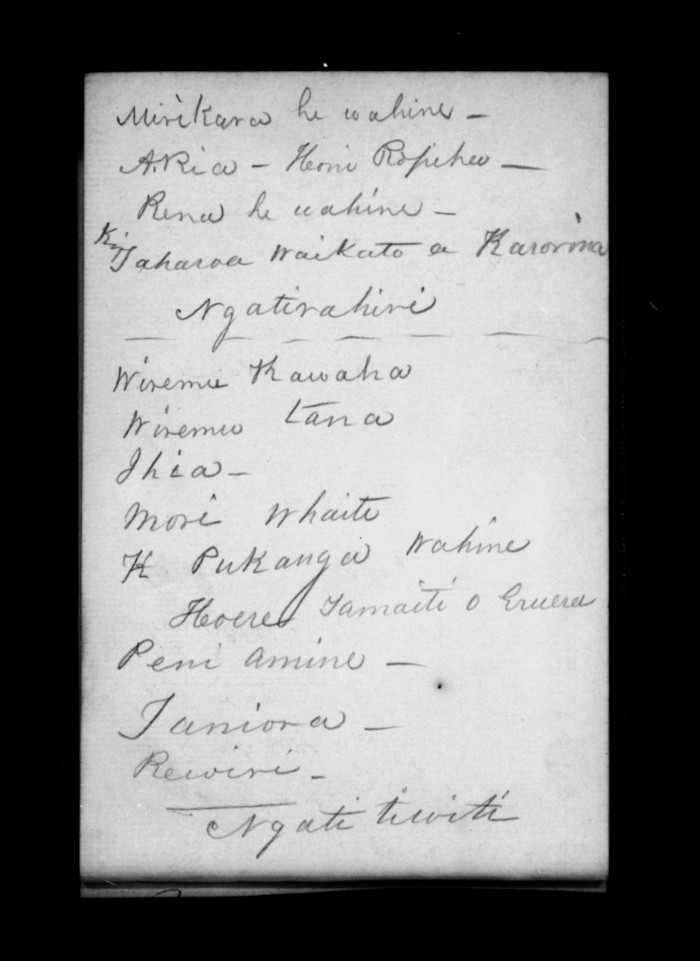 Mirikara he wahine -
A. Ria - Heni Ropiha -
Rena he wahine -
Ki Taharoa Waikato a Karorina
Ngatirahiri
Wiremu Kawaha
Wiremu Tana
Ihia -
Mori Whaiti
K Pukanga Wahine
Hoera Tamaiti o Eruera
Peni Amine -
Taniora -
Rewiri -
Ngati tiwiti